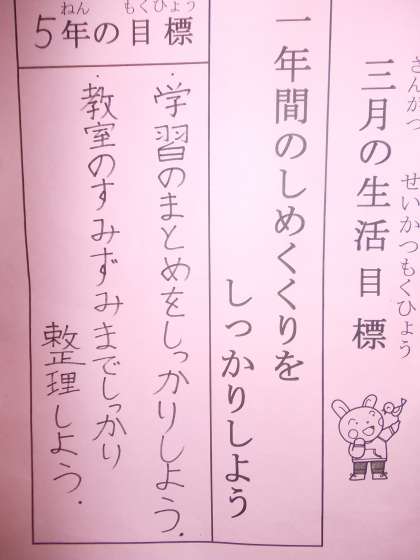 さんがつ せいかつもくひょう
三月の生活目標
一年間のしめくくりを
しっかりしよう
ねん もくひょう
5年の目標
・学習のまとめをしっかりしよう.
・教室のすみずみまでしっかり
整理しよう.